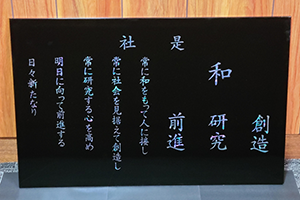 社是
創造
和 研究
前進
常に和をもって人に接し
常に社会を見据えて創造し
常に研究する心を高め
明日に向って前進する
日々新たなり